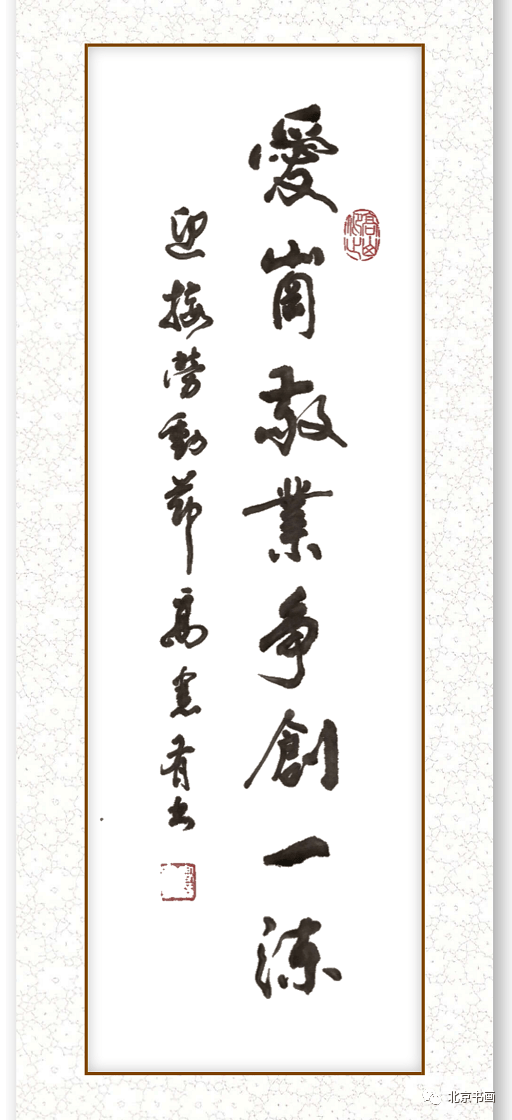 愛崗敬業争創一流
迎接勞動節 高憲有书
北京书画